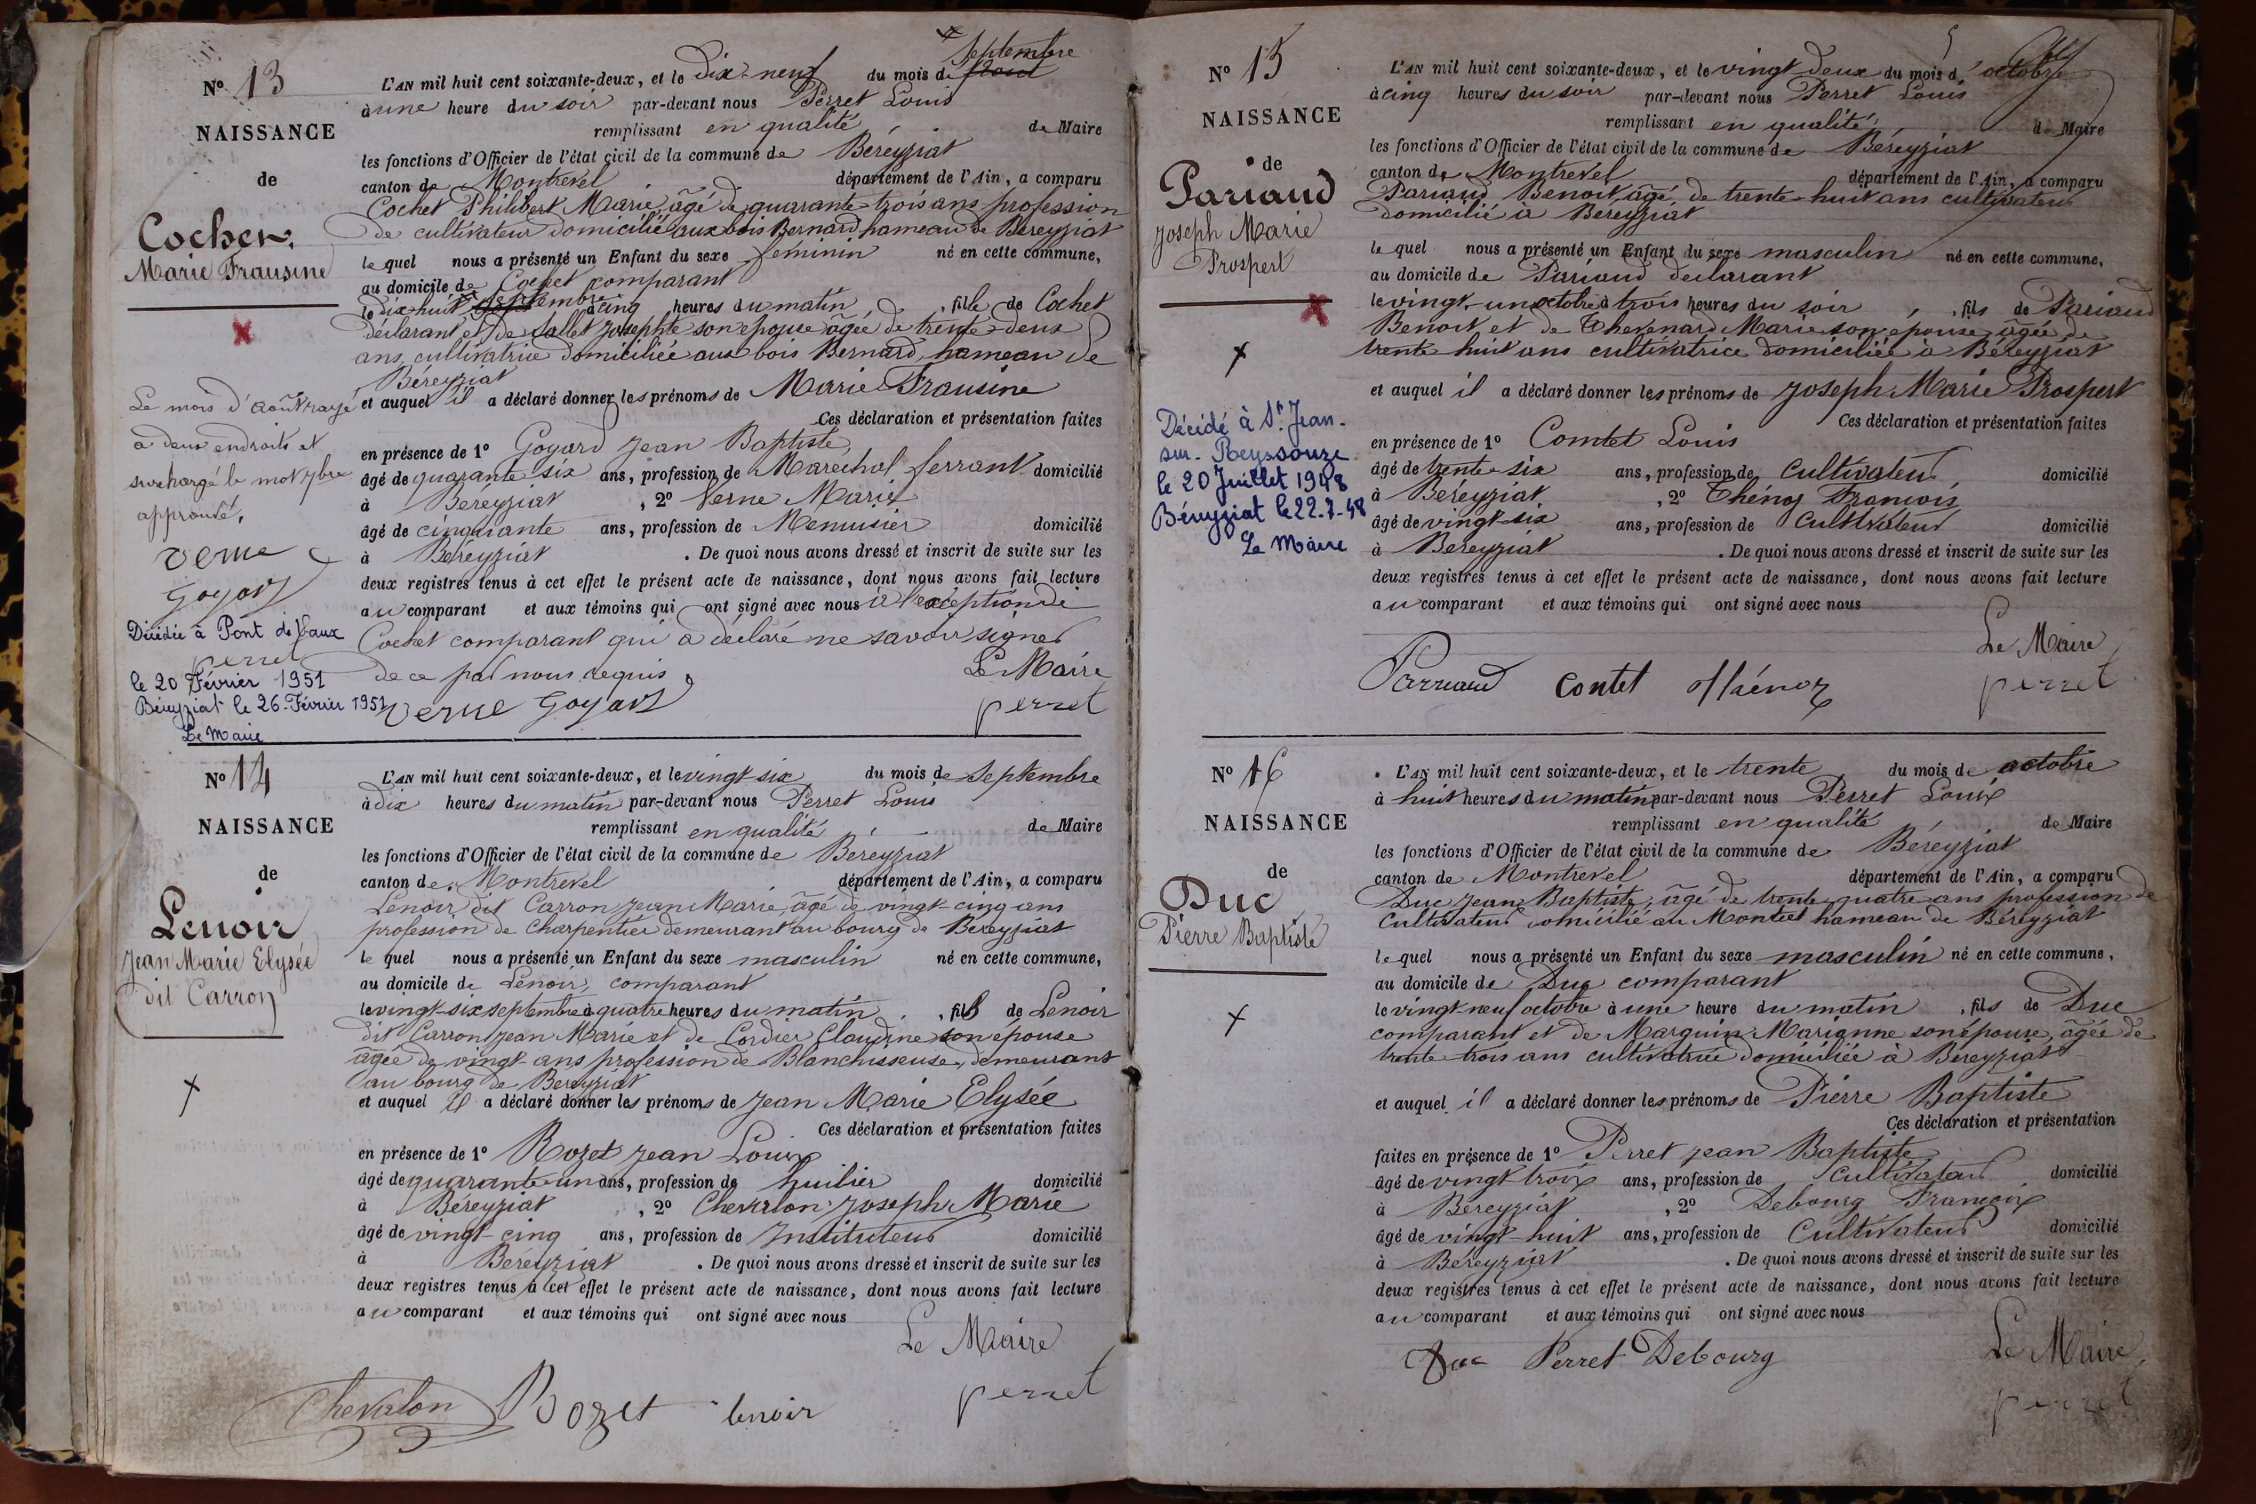 Nº 13
NAISSANCE
de
Cochet
Marie Frausine
Le mois d'août rayé
à deux endroits et
surchargé le mot 7bre
approuvé,
Verne
Goyard
perret
Décédée à Pont de Vaux
le 20 Février 1951
Béreyziat le 26-Février 1951
Le Maire
L'AN mil huit cent soixante-deux, et le dix-neuf du mois de août septembre
à une heure du soir par-devant nous Perret Louis
remplissant en qualité de Maire
les fonctions d'Officier de l'état civil de la commune de Béreyziat
canton de Montrevel département de l'Ain, a comparu
Cochet Philibert Marie, âgé de quarante-trois ans profession
de cultivateur domicilié aux bois Bernard hameau de Béreyziat
le quel nous a présenté un Enfant du sexe féminin né en cette commune,
au domicile de Cochet comparant
le dix huit septembre à cinq heures du matin, fille de Cochet
déclarant et de Sallet Josephte son épouse âgée de trente-deux
ans, cultivatrice domiciliée aux bois Bernard, hameau de
Béreyziat
et auquel il a déclaré donner les prénoms de Marie Frausine
Ces déclaration et présentation faites
en présence de 1º Goyard Jean Baptiste
âgé de quarante six ans, profession de Marechal ferrant domicilié
à Béreyziat, 2º Verne Marie
âgé de cinquante ans, profession de Menuisier domicilié
à Béreyziat. De quoi nous avons dressé et inscrit de suite sur les
deux registres tenus à cet effet le présent acte de naissance, dont nous avons fait lecture
au comparant et aux témoins qui ont signé avec nous à l'exception de
Cochet comparant qui a déclaré ne savoir signer
de ce par nous requis,
Le Maire
Verne Goyard perret
Nº 14
NAISSANCE
de
Lenoir
Jean Marie Elysée
dit Carron
L'AN mil huit cent soixante-deux, et le vingt-six du mois de septembre
à dix heures du matin par-devant nous Perret Louis
remplissant en qualité de Maire
les fonctions d'Officier de l'état civil de la commune de Béreyziat
canton de Montrevel département de l'Ain, a comparu
Lenoir dit Carron Jean Marie, âgé de vingt-cinq ans
profession de Charpentier demeurant au bourg de Béreyziat
le quel nous a présenté un Enfant du sexe masculin né en cette commune,
au domicile de Lenoir, comparant
le vingt-six septembre à quatre heures du matin, fils de Lenoir
dit Carron Jean Marie et de Cordier Claudine son épouse
âgée de vingt ans profession de Blanchisseuse, demeurant
au bourg de Béreyziat
et auquel il a déclaré donner les prénoms de Jean Marie Elysée
Ces déclaration et présentation faites
en présence de 1º Rozet Jean Louis
âgé de quarante-un ans, profession de huilier domicilié
à Béreyziat, 2º Chevalon Joseph Marie
âgé de vingt-cinq ans, profession de Instituteur domicilié
à Béreyziat. De quoi nous avons dressé et inscrit de suite sur les
deux registres tenus à cet effet le présent acte de naissance, dont nous avons fait lecture
au comparant et aux témoins qui ont signé avec nous
Le Maire
Chevalon Rozet lenoir perret
5
Nº 15
NAISSANCE
de
Pariaud
Joseph Marie
Prospert
Décédé à St. Jean-
sur-Reyssouze
le 20 Juillet 1948
Béreyziat le 22-7-48
Le Maire
L'AN mil huit cent soixante-deux, et le vingt deux du mois d'octobre
à cinq heures du soir par-devant nous Perret Louis
remplissant en qualité de Maire
les fonctions d'Officier de l'état civil de la commune de Béreyziat
canton de Montrevel département de l'Ain, a comparu
Pariaud Benoit, âgé de trente-huit ans cultivateur
domicilié à Béreyziat
le quel nous a présenté un Enfant du sexe masculin né en cette commune,
au domicile de Pariaud declarant
le vingt-un octobre à trois heures du soir, fils de Pariaud
Benoit et de Thevenard Marie son épouse, âgée de
trente huit ans cultivatrice domiciliée à Béreyziat
et auquel il a déclaré donner les prénoms de Joseph Marie Prospert
Ces déclaration et présentation faites
en présence de 1º Comtet Louis
âgé de trente-six ans, profession de cultivateur domicilié
à Béreyziat, 2º Thénoz François
âgé de vingt-six ans, profession de Cultivateur domicilié
à Béreyziat. De quoi nous avons dressé et inscrit de suite sur les
deux registres tenus à cet effet le présent acte de naissance, dont nous avons fait lecture
au comparant et aux témoins qui ont signé avec nous
Le Maire
Parriaud Contet thénoz perret
Nº 16
NAISSANCE
de
Duc
Pierre Baptiste
L'AN mil huit cent soixante-deux, et le trente du mois de octobre
à huit heures du matin par-devant nous Perret Louis
remplissant en qualité de Maire
les fonctions d'Officier de l'état civil de la commune de Béreyziat
canton de Montrevel département de l'Ain, a comparu
Duc Jean Baptiste, âgé de trente-quatre ans profession de
Cultivateur domicilié au Montcet hameau de Béreyziat
le quel nous a présenté un Enfant du sexe masculin né en cette commune,
au domicile de Duc comparant
le vingt neuf octobre à une heure du matin, fils de Duc
comparant et de Marguin Marianne son épouse, âgée de
trente-trois ans cultivatrice domiciliée à Béreyziat
et auquel il a déclaré donner les prénoms de Pierre Baptiste
Ces déclaration et présentation
faites en présence de 1º Perret Jean Baptiste
âgé de vingt trois ans, profession de Cultivateur domicilié
à Béreyziat, 2º Debourg François
âgé de vingt-huit ans, profession de Cultivateur domicilié
à Béreyziat. De quoi nous avons dressé et inscrit de suite sur les
deux registres tenus à cet effet le présent acte de naissance, dont nous avons fait lecture
au comparant et aux témoins qui ont signé avec nous
Le Maire
Duc Perret Debourg
perret